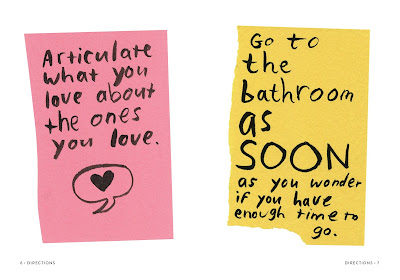 Articulate
what you
love about
the ones
you love.
Go to
the
bathroom
as
SOON
as you wonder
if you have
enough time to
go.
6 • DIRECTIONS
DIRECTIONS • 7